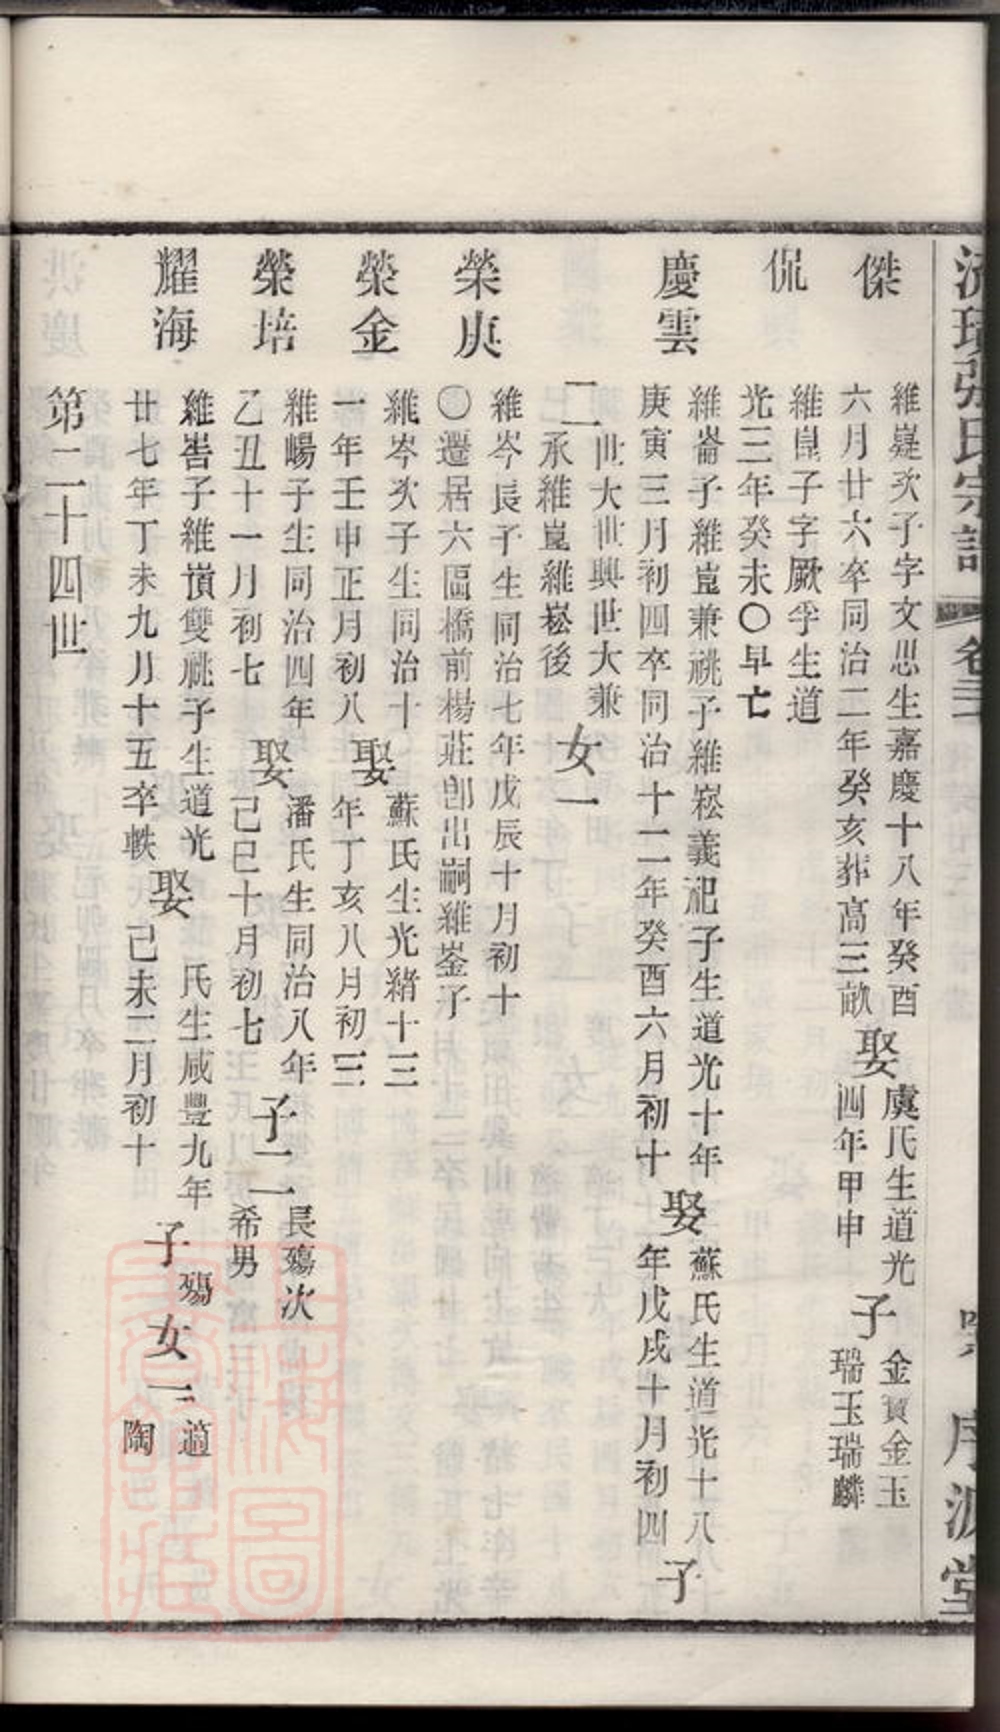 張氏宗譜 卷三 序源堂
傑
維嶷次子字文思生嘉慶十八年癸酉
六月廿六卒同治二年癸亥葬高三畝
娶
虞氏生道光
四年甲申
子
金寶金玉
瑞玉瑞麟
侃
維崑子字厥孚生道
光三年癸未〇早亡
慶雲
維崙子維崑兼祧子維崧義祀子生道光十年
庚寅三月初四卒同治十二年癸酉六月初十
娶
蘇氏生道光十八
年戊戌十月初四
子
二
世大世興世大兼
承維崑維崧後
女一
榮庚
維岑長子生同治七年戊辰十月初十
〇遷居六區橋前楊莊卽出嗣維崟子
榮金
維岑次子生同治十
一年壬申正月初八
娶
蘇氏生光緒十三
年丁亥八月初三
榮培
維崵子生同治四年
乙丑十一月初七
娶
潘氏生同治八年
己巳十月初七
子二
長殤次
希男
耀海
維嚳子維嵿雙祧子生道光
廿七年丁未九月十五卒軼
娶
氏生咸豐九年
己未二月初十
子
殤
女一
適
陶
第二十四世